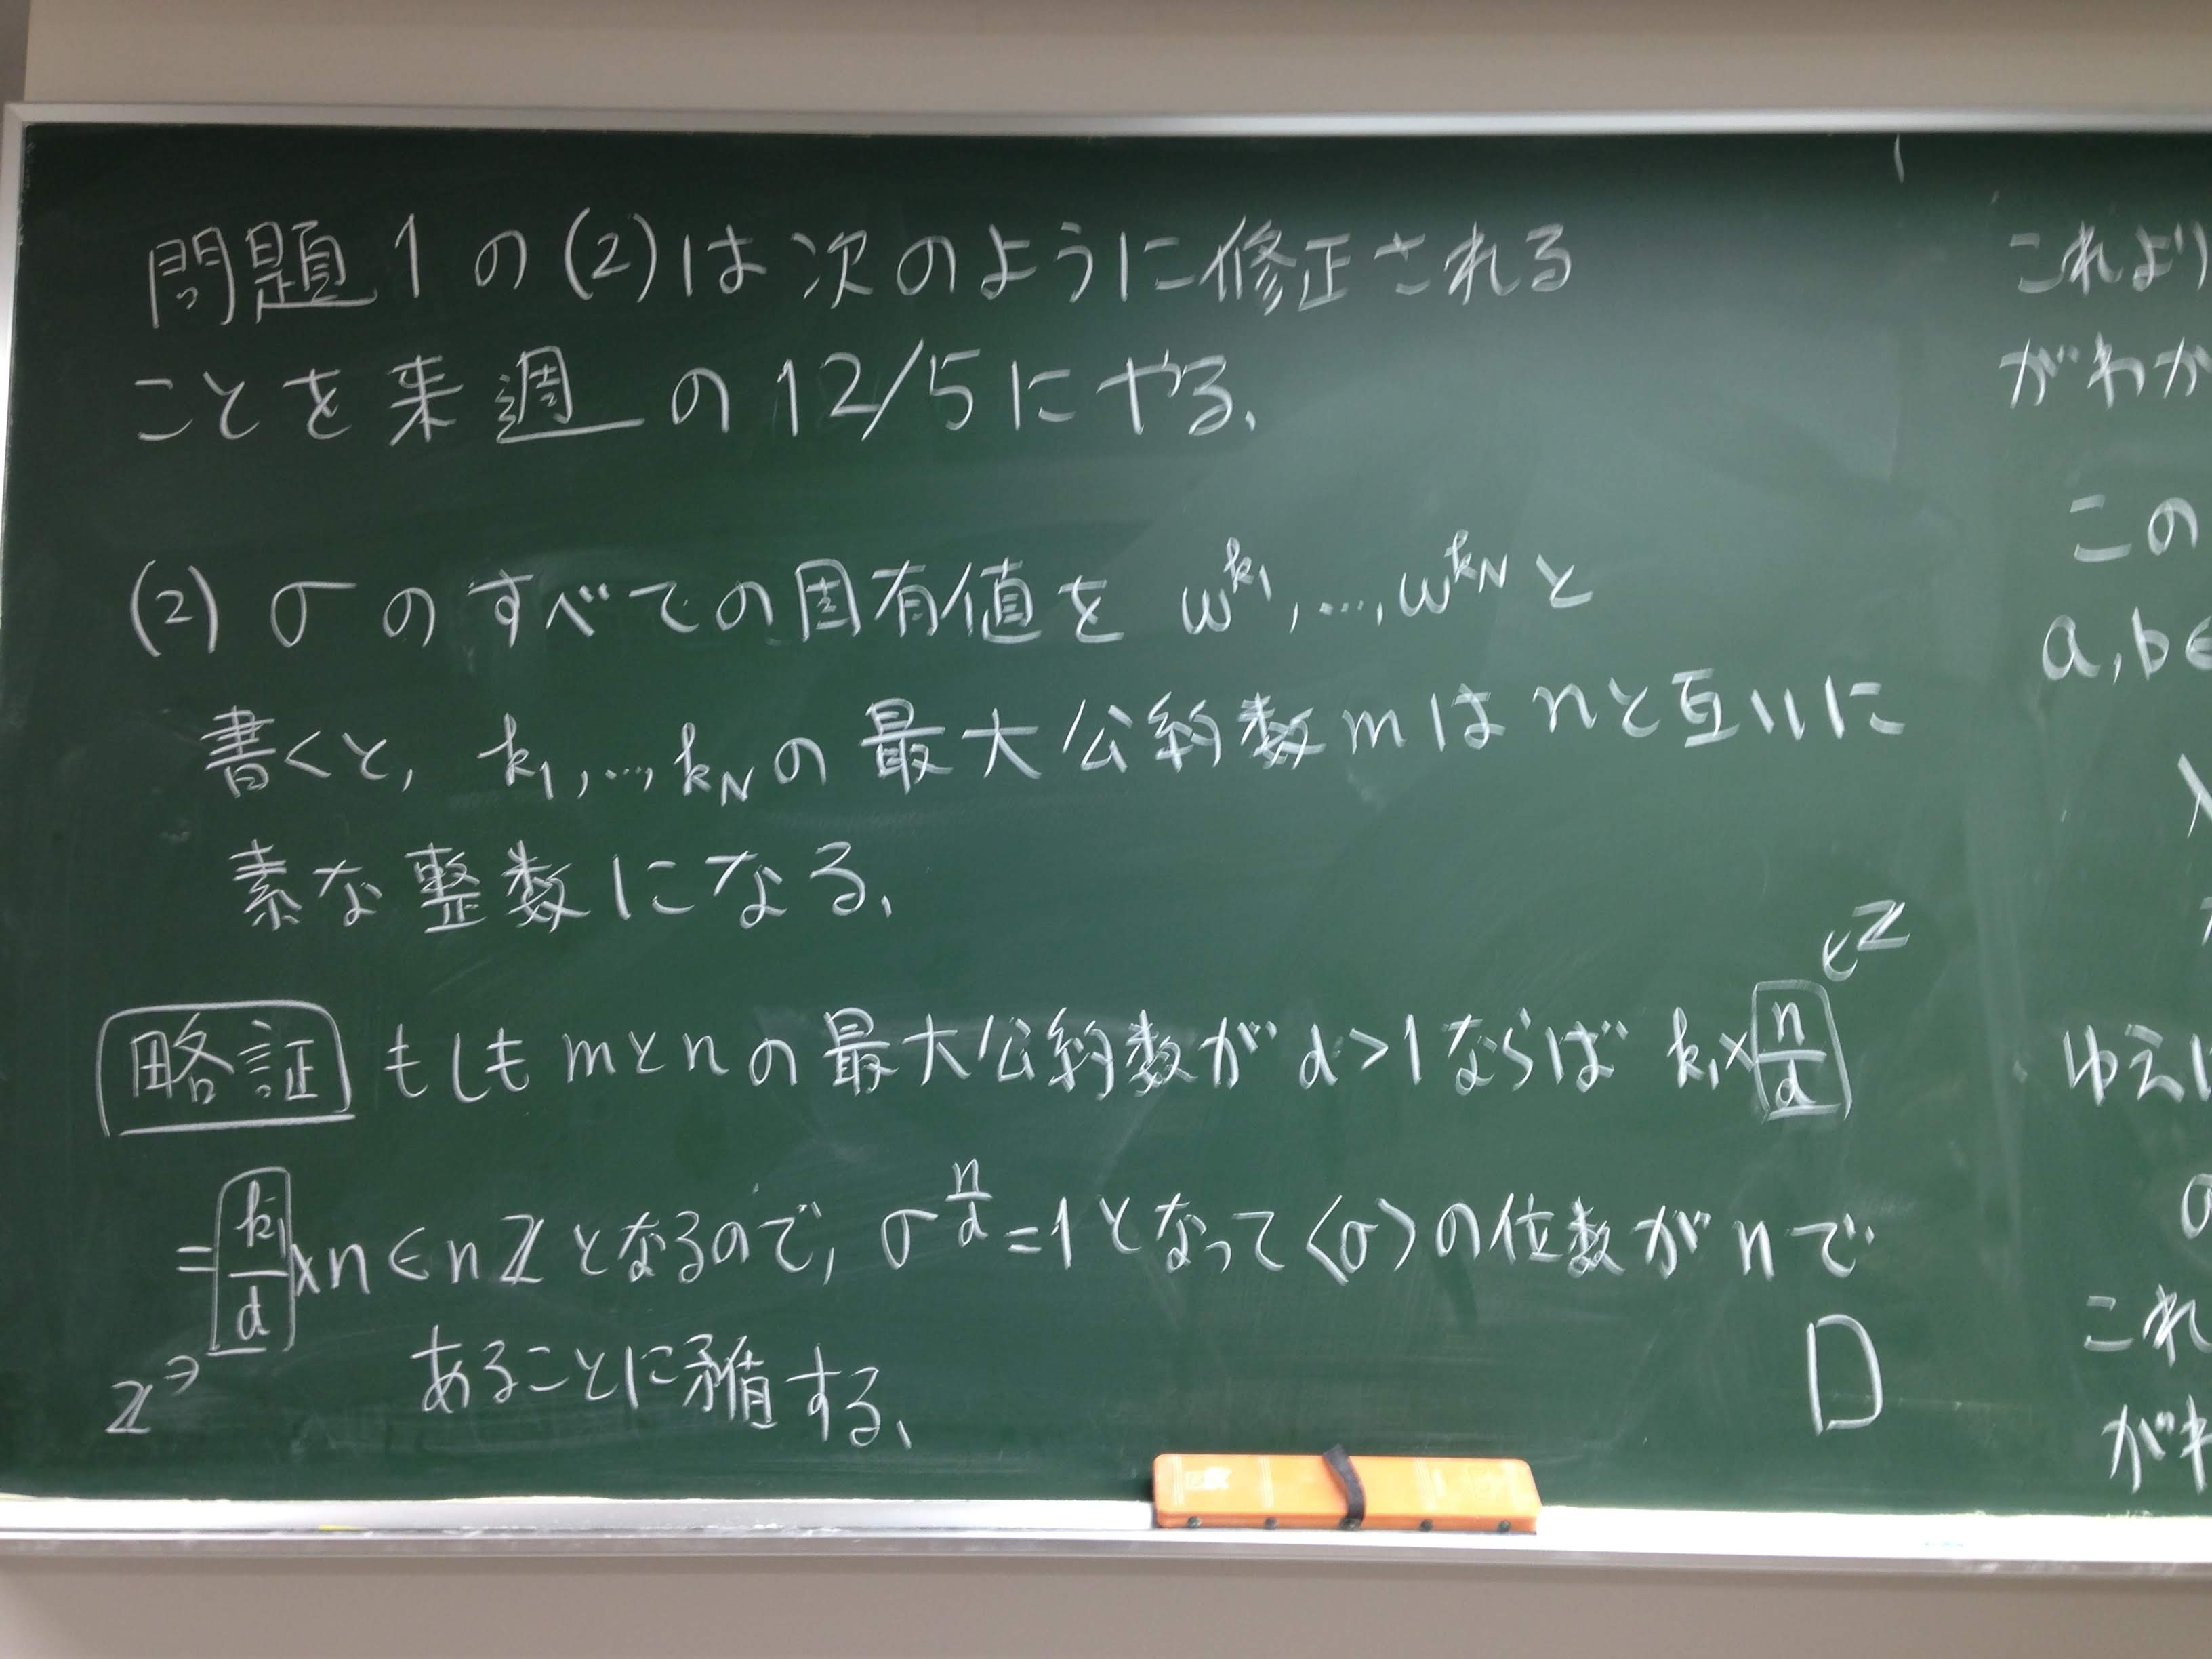 問題1の(2)は次のように修正される
ことを来週の12/5にやる.
(2) σのすべての固有値を ω^{k_1}, …, ω^{k_N} と
書くと, k_1, …, k_N の最大公約数 m は n と互いに
素な整数になる.
∈Z
略証 もしも m と n の最大公約数が d > 1 ならば k_1 × n/d
= k_1/d × n ∈ nZ となるので, σ^{n/d} = 1 となって ⟨σ⟩ の位数が n で
Z∋
あることに矛盾する. □
これより
がわか
この
a, b ∈
ゆえに
これ
がわ